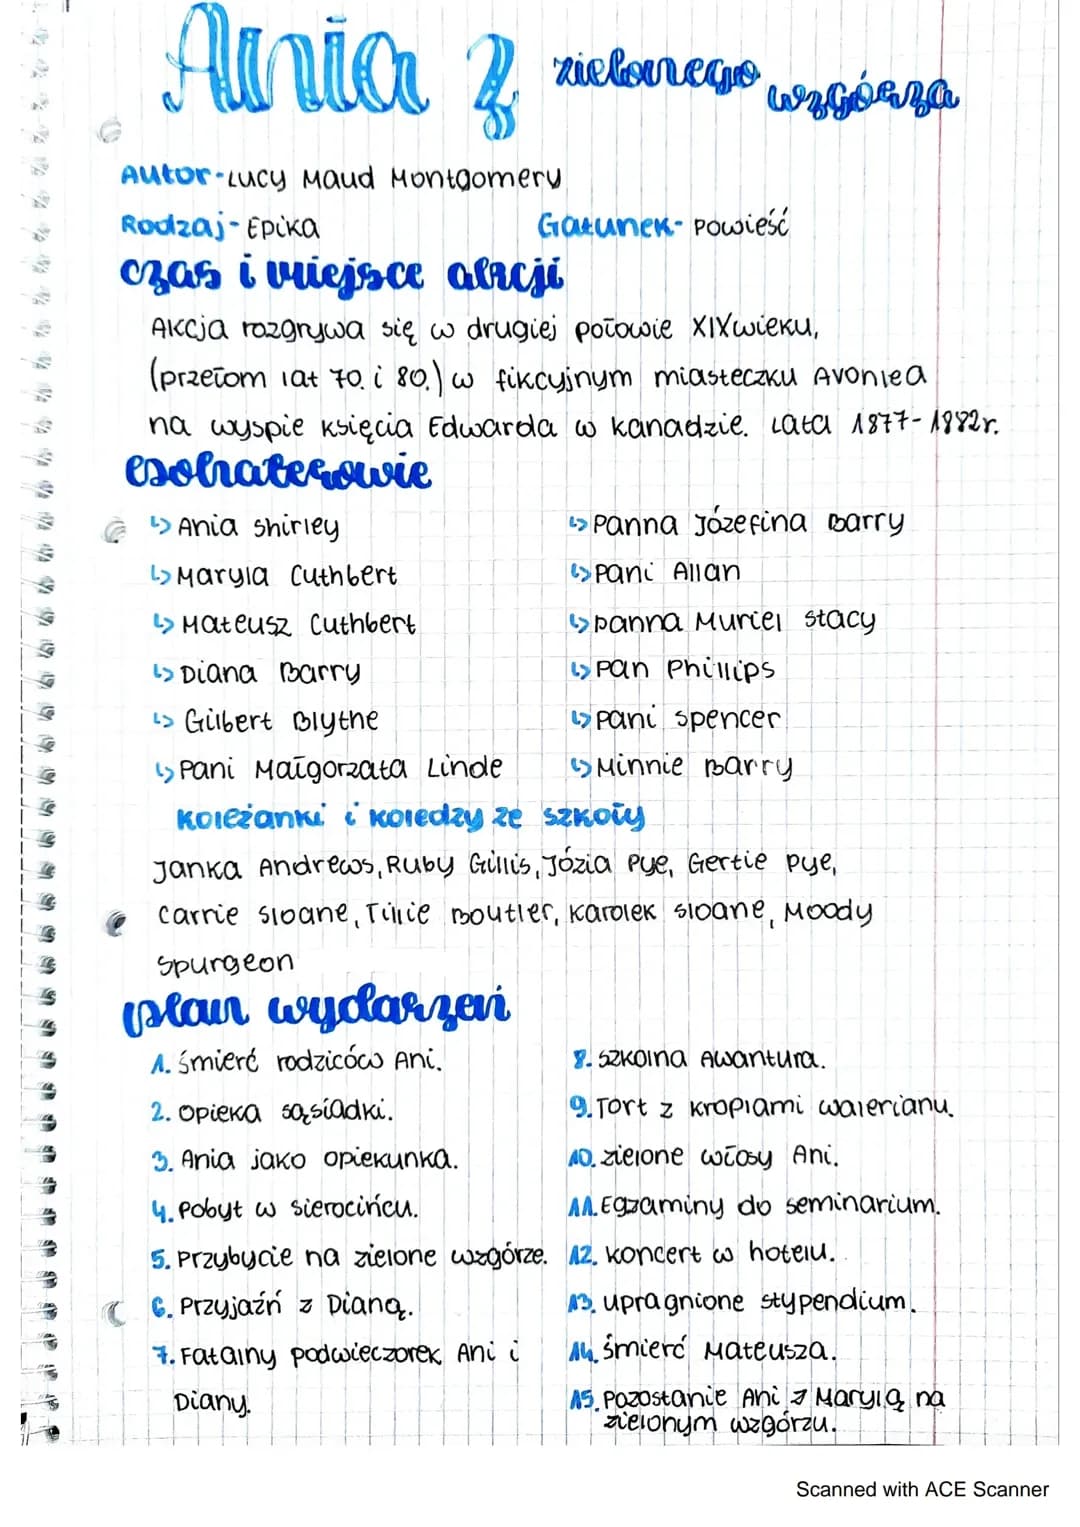 Ania z zielonego wzgórza
Autor - Lucy Maud Montgomery
Rodzaj - Epika
Gatunek - powieść
czas i miejsce akcji
Akcja rozgrywa się w drugiej połowie XIX wieku,
(przełom lat 70. i 80.) w fikcyjnym miasteczku Avonlea
na wyspie księcia Edwarda w kanadzie. Lata 1877-1882r.
Bohaterowie
↳ Ania Shirley
↳ Maryla Cuthbert
↳ Mateusz Cuthbert
↳ Diana Barry
↳ Gilbert Blythe
↳ Pani Małgorzata Linde
↳ Panna Józefina Barry
↳ Pani Allan
↳ panna Muriel Stacy
↳ Pan Phillips
↳ pani Spencer
↳ Minnie Barry
koleżanki i koledzy ze szkoły
Janka Andrews, Ruby Gillis, Józia Pye, Gertie Pye,
Carrie Sloane, Tillie Boutler, Karolek Sloane, Moody
Spurgeon
plan wydarzeń
1. śmierć rodziców Ani.
2. opieka sąsiadki.
3. Ania jako opiekunka.
4. Pobyt w sierocińcu.
5. Przybycie na zielone wzgórze.
6. Przyjaźń z Dianą.
7. Fatalny podwieczorek Ani i
Diany.
8. szkolna Awantura.
9. Tort z kroplami walerianu.
10. zielone włosy Ani.
11. Egzaminy do seminarium.
12. koncert w hotelu.
13. upragnione stypendium.
14. śmierć Mateusza.
15. Pozostanie Ani z Marylą na
zielonym wzgórzu.
Scanned with ACE Scanner